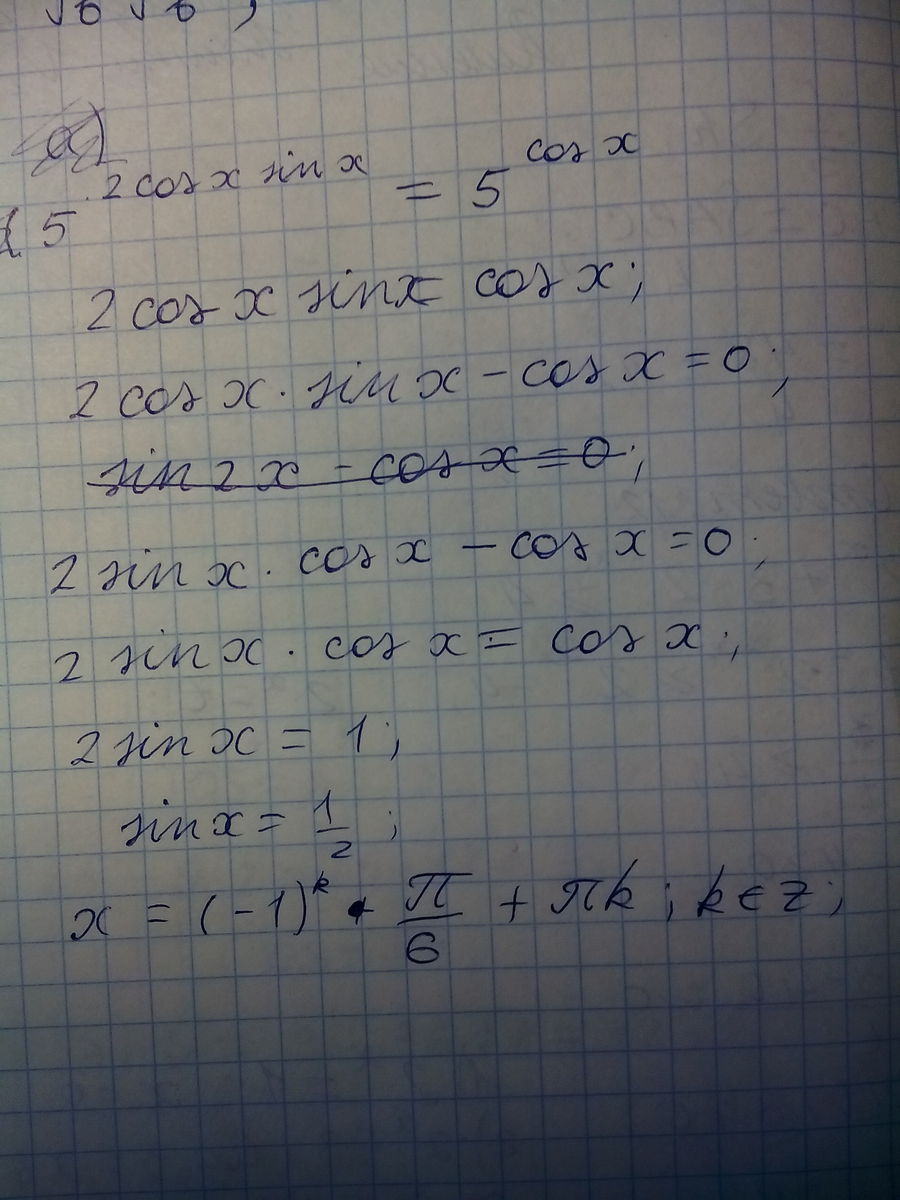 √6 √6 ;
а)
{5^{2cos x sin x} = 5^{cos x}
2 cos x sin x = cos x;
2 cos x · sin x - cos x = 0;
sin 2x - cos x = 0;
2 sin x · cos x - cos x = 0;
2 sin x · cos x = cos x;
2 sin x = 1;
sin x = 1/2;
x = (-1)^k · π/6 + πk; k ∈ z;